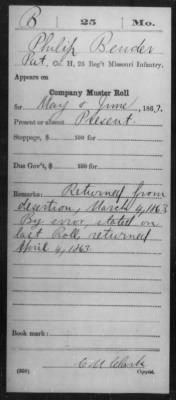 B 25 Mo.
Philip Bender
Pvt., Co. H, 25 Reg't Missouri Infantry.
Appears on
Company Muster Roll
for May & June, 1863.
Present or absent Present.
Stoppage, $ 100 for
Due Gov't, $ 100 for
Remarks: Returned from
desertion, March 9, 1863
By error, stated on
last Roll, returned
April 9, 1863.
Book mark:
(858) Copyist.